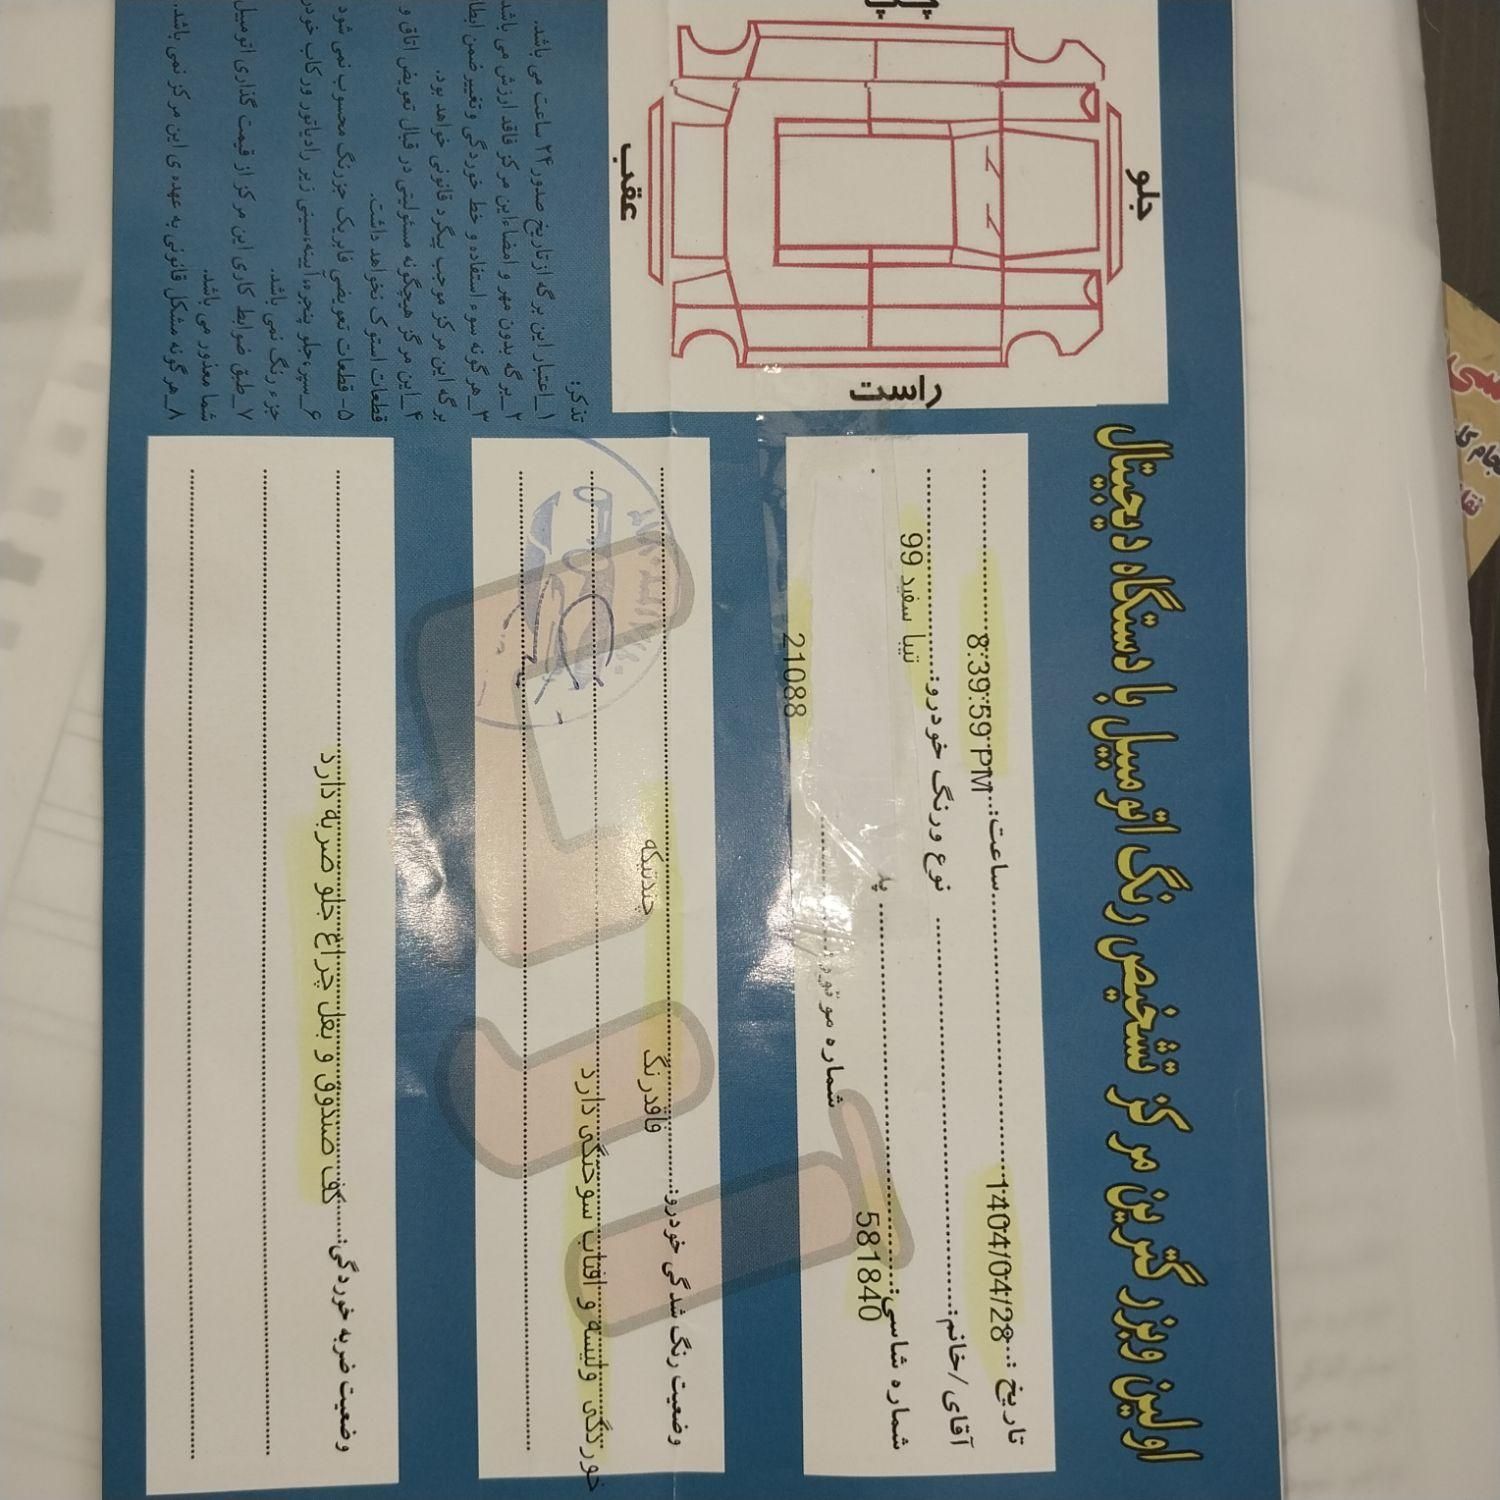 اولین وبزرگترین مرکز تشخیص رنگ اتومبیل با دستگاه دیجیتال
تاریخ :...1404/04/28...ساعت:...8:39:59 PM
آقای /خانم:... نوع ورنگ خودرو:... تیبا سفید 99
شماره شاسی:... 581840 ... پلا
شماره موتور:... 21088
وضعیت رنگ شدگی خودرو:... فاقدرنگ چندتیکه
خوردگی ولیسه و افتاب سوختگی دارد
وضعیت ضربه خوردگی:... کف صندوق و بغل چراغ جلو ضربه دارد
جلو
عقب
راست
تذکر:
۱_اعتبار این برگه ازتاریخ صدور ۲۴ ساعت می باشد.
۲_برگه بدون مهر و امضاءاین مرکز فاقد ارزش می باشد
۳_هرگونه سوء استفاده و خط خوردگی وتغییر ضمن ابطا
برگه این مرکز موجب پیگرد قانونی خواهد بود.
۴_این مرکز هیچگونه مسئولیتی در قبال تعویض اتاق و
قطعات استوک نخواهد داشت.
۵- قطعات تعویضی فابریک جزرنگ محسوب نمی شود
۶_سپرجلو پنجره،آیینه،سینی زیر رادیاتور ورکاب خودر
جزء رنگ نمی باشد.
۷_طبق ضوابط کاری این مرکز از قیمت گذاری اتومبیل
شما معذور می باشد.
۸_هرگونه مشکل قانونی به عهده ی این مرکز نمی باشد.